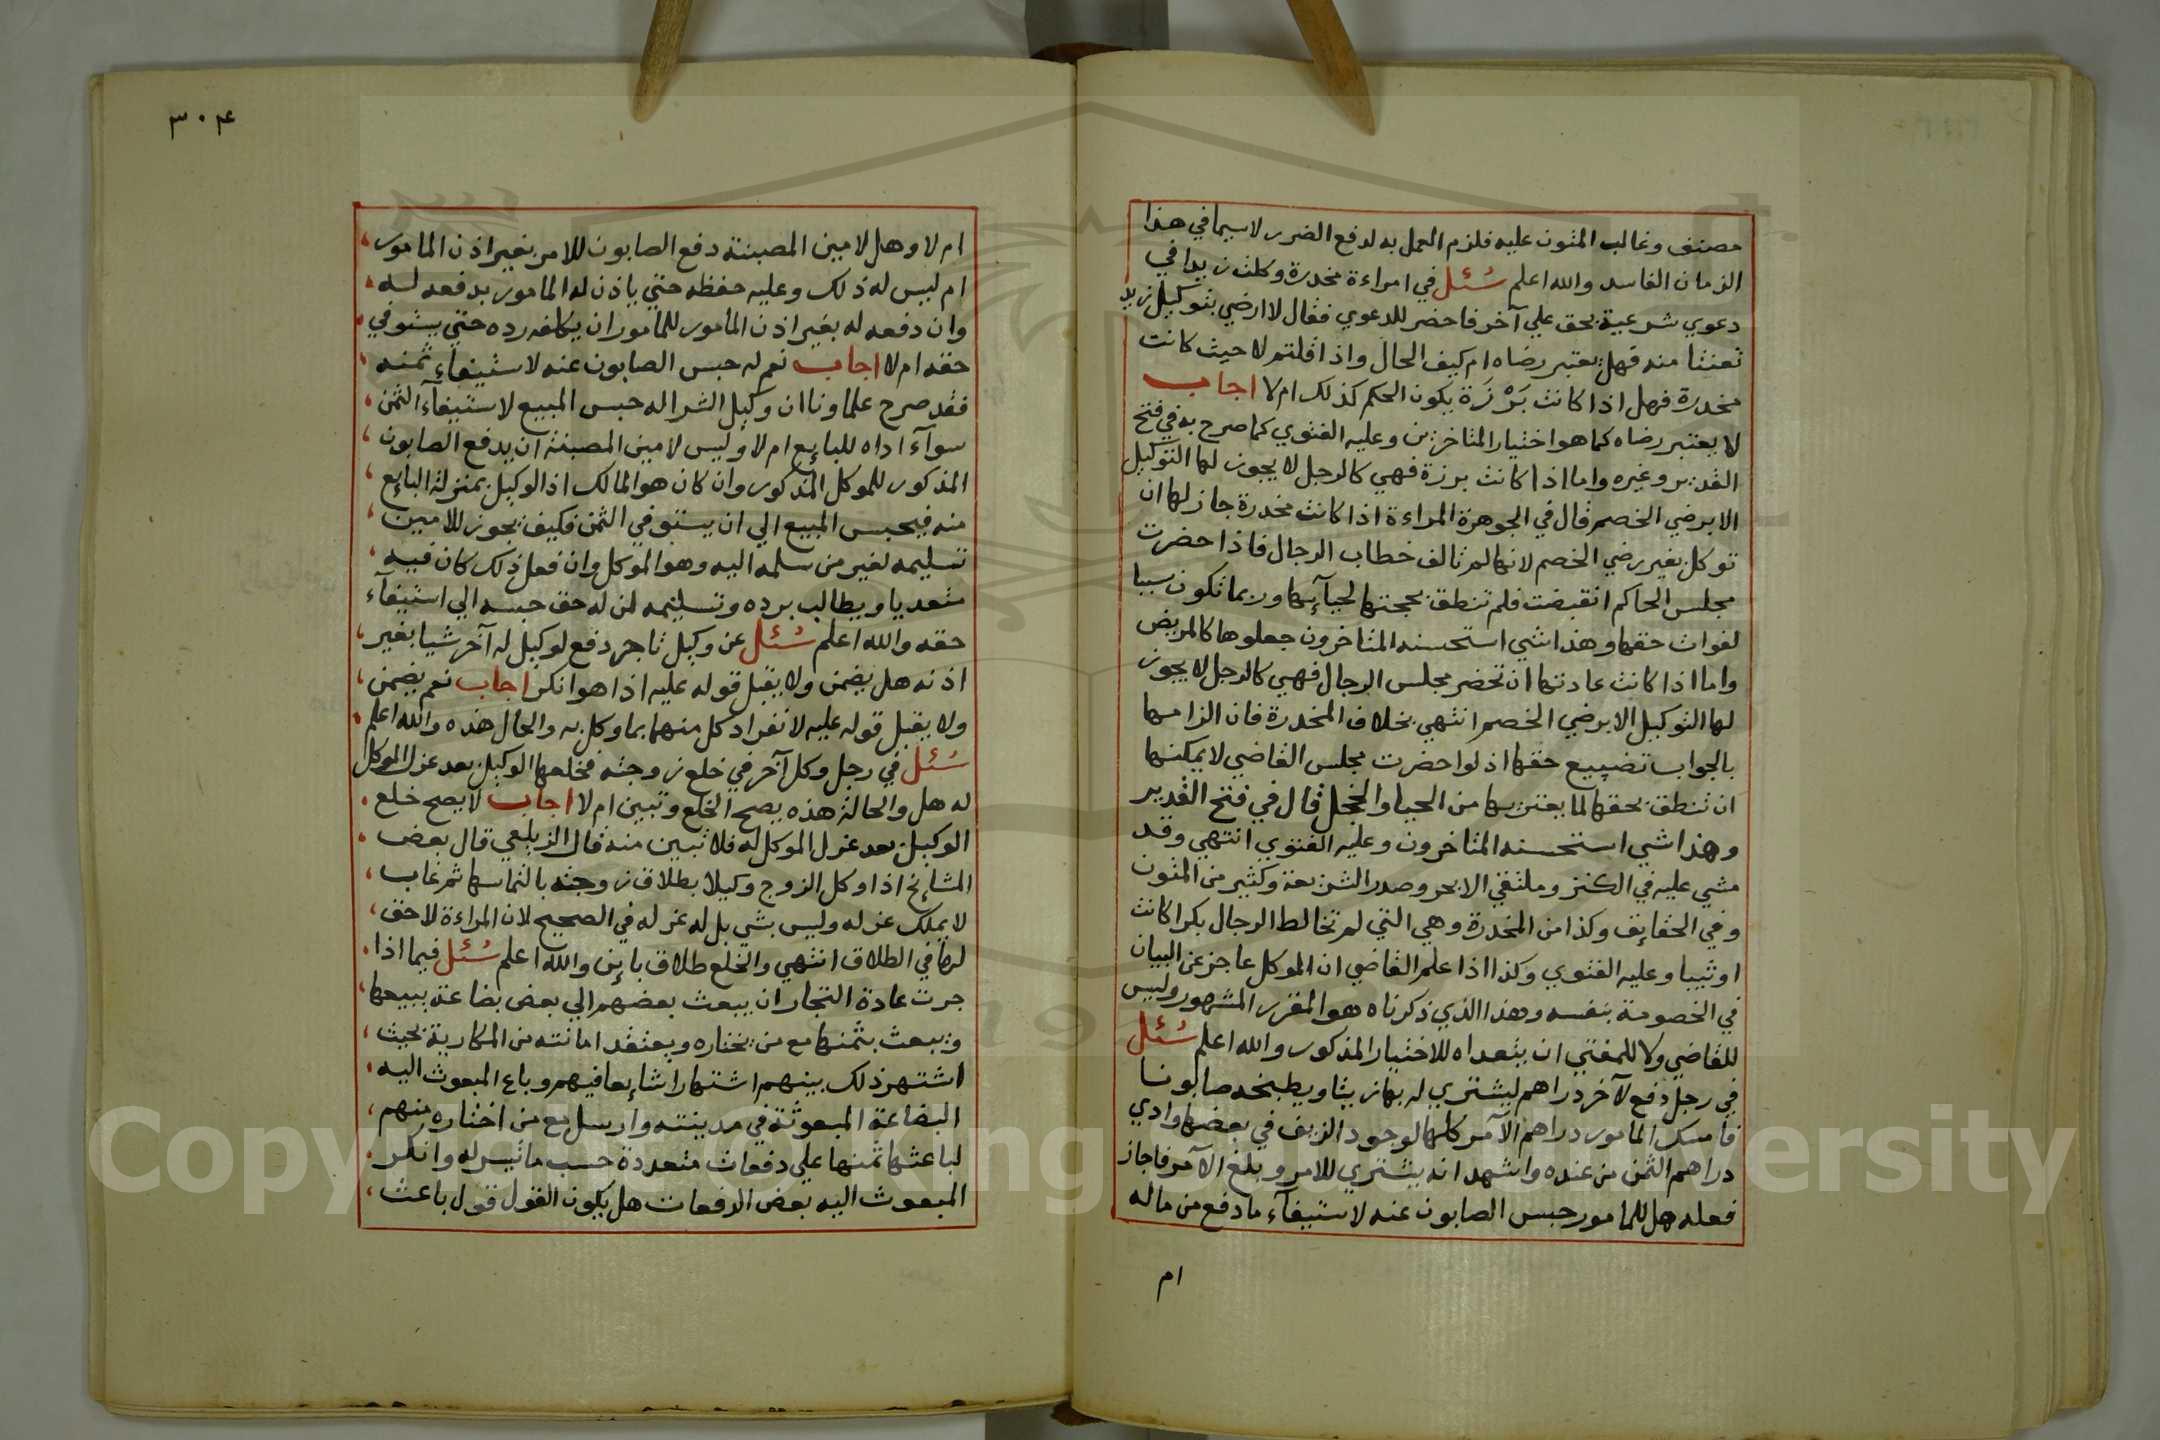 مصنف وغالب المتون عليه فلزم العمل به لدفع الضرر لاسيما في هذا
الزمان الفاسد والله اعلم سُئل في امراءة مخدرة وكلت زيدا في
دعوي شرعية بحق علي آخر فاحضر للدعوي فقال لا ارضي بتوكيل زيد
تعنتا منه فهل يعتبر رضاه ام كيف الحال واذا قلتم لا حيث كانت
مخدرة فهل اذا كانت بَرْزَة يكون الحكم كذلك ام لا اجاب
لا يعتبر رضاه كما هو اختيار المتاخرين وعليه الفتوي كما صرح به في فتح
القدير وغيره واما اذا كانت برزة فهي كالرجل لا يجوز لها التوكيل
الا برضي الخصم قال في الجوهرة المراءة اذا كانت مخدرة جاز لها ان
توكل بغير رضي الخصم لانها لم تالف خطاب الرجال فاذا حضرت
مجلس الحاكم انقبضت فلم تنطق بحجتها لحيآئها وربما تكون سببا
لفوات حقها وهذا شي استحسنه المتاخرون جعلوها كالمريض
واما اذا كانت عادتها ان تحضر مجلس الرجال فهي كالرجل لا يجوز
لها التوكيل الا برضي الخصم انتهي بخلاف المخدرة فان الزامها
بالجواب تضييع حقها اذ لو حضرت مجلس القاضي لا يمكنها
ان تنطق بحقها لما يعتريها من الحيا والخجل قال في فتح القدير
وهذا شي استحسنه المتاخرون وعليه الفتوي انتهي وقد
مشي عليه في الكنز وملتقي الابحر وصدر الشريعة وكثير من المتون
وفي الحقايق وكذا من المخدرة وهي التي لم تخالط الرجال بكرا كانت
او ثيبا وعليه الفتوي وكذا اذا علم القاضي ان الموكل عاجز عن البيان
في الخصومة بنفسه وهذا الذي ذكرناه هو المقرر المشهور وليس
للقاضي ولا للمفتي ان يتعداه للاختيار المذكور والله اعلم سُئل
في رجل دفع لآخر دراهم ليشتري له بها زيتا ويطبخه صابونا
فامسك المامور دراهم الآمر كلها لوجود الزيف في بعضها وادي
دراهم الثمن من عنده واشهد انه يشتري للامر وبلغ الآمر فاجاز
فعله هل للمامور حبس الصابون عنه لاستيفآء ما دفع من ماله
ام
٣٠٤
ام لا وهل لامين المصبنة دفع الصابون للامر بغير اذن المامور
ام ليس له ذلك وعليه حفظه حتي ياذن له المامور بدفعه له
وان دفعه له بغير اذن المامور للمامور ان يكلفه رده حتي يستوفي
حقه ام لا اجاب نعم له حبس الصابون عنه لاستيفاء ثمنه
فقد صرح علماونا ان وكيل الشرا له حبس المبيع لاستيفآء الثمن
سوآء اداه للبايع ام لا وليس لامين المصبنة ان يدفع الصابون
المذكور للموكل المذكور وان كان هو المالك اذ الوكيل بمنزلة البايع
منه فيحبس المبيع الي ان يستوفي الثمن فكيف يجوز للامين
تسليمه لغير من سلمه اليه وهو الموكل وان فعل ذلك كان فيه
متعديا ويطالب برده وتسليمه لمن له حق حبسه الي استيفآء
حقه والله اعلم سُئل عن وكيل تاجر دفع لوكيل له آخر شيا بغير
اذنه هل يضمن ولا يقبل قوله عليه اذا هو انكر اجاب نعم يضمن
ولا يقبل قوله عليه لانفراد كل منهما بما وكل به والحال هذه والله اعلم
سُئل في رجل وكل آخر في خلع زوجته فخلعها الوكيل بعد عزل الموكل
له هل والحالة هذه يصح الخلع وتبين ام لا اجاب لا يصح خلع
الوكيل بعد عزل الموكل له فلا تبين منه قال الزيلعي قال بعض
المشايخ اذا وكل الزوج وكيلا بطلاق زوجته بالتماسها ثم غاب
لا يملك عزله وليس بشي بل له عزله في الصحيح لان المراءة لا حق
لها في الطلاق انتهي والخلع طلاق باين والله اعلم سُئل فيما اذا
جرت عادة التجار ان يبعث بعضهم الي بعض بضاعة يبيعها
ويبعث بثمنها مع من يختاره ويعتقد امانته من المكارية بحيث
اشتهر ذلك بينهم اشتهارا شايعا فيهم وباع المبعوث اليه
البضاعة المبعوثة في مدينته وارسل مع من اختاره منهم
لباعثها ثمنها علي دفعات متعددة حسب ما تيسر له وانكر
المبعوث اليه بعض الدفعات هل يكون القول قول باعث